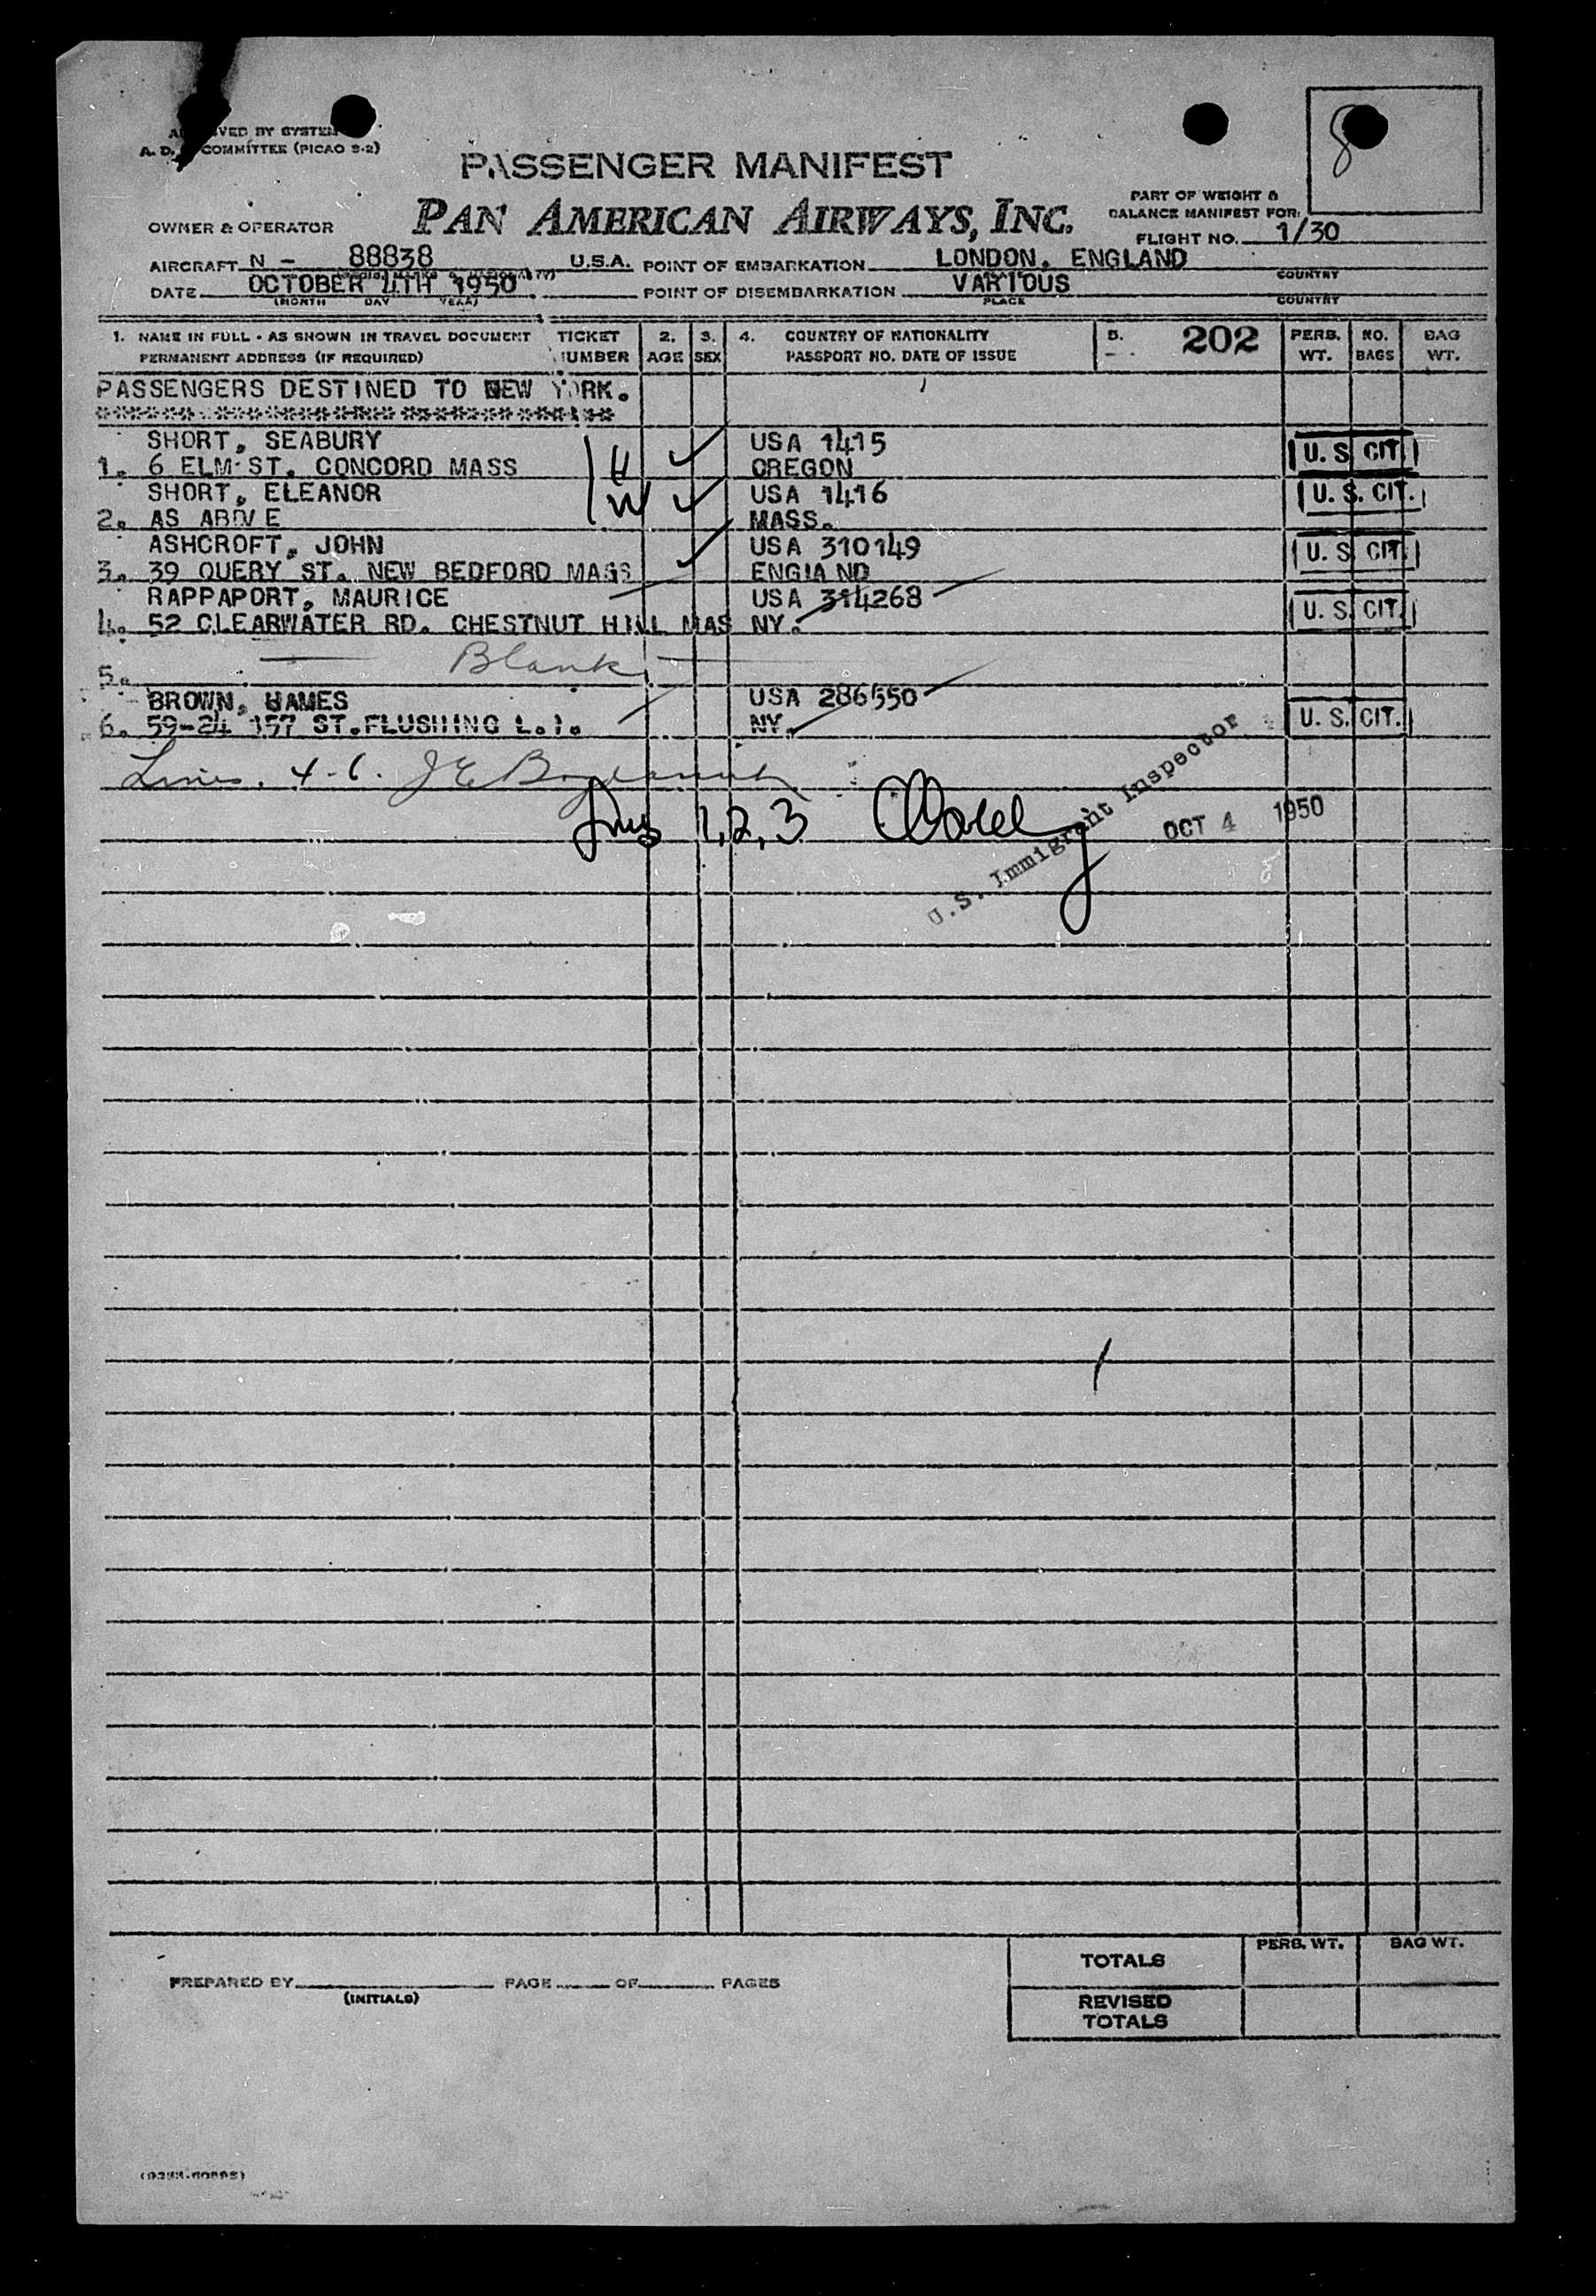 8
VED BY SYSTEM
A. D. COMMITTEE (PICAO S-2)
PASSENGER MANIFEST
PAN AMERICAN AIRWAYS, INC.
PART OF WEIGHT &
BALANCE MANIFEST FOR:
OWNER & OPERATOR
FLIGHT NO. 1/30
AIRCRAFT N - 88838 U.S.A. POINT OF EMBARKATION LONDON, ENGLAND
COUNTRY
DATE OCTOBER 4TH 1950 POINT OF DISEMBARKATION VARIOUS
(MONTH DAY YEAR) PLACE COUNTRY
1. NAME IN FULL - AS SHOWN IN TRAVEL DOCUMENT TICKET 2. 3. 4. COUNTRY OF NATIONALITY 5. 202 PERS. NO. BAG
PERMANENT ADDRESS (IF REQUIRED) NUMBER AGE SEX PASSPORT NO. DATE OF ISSUE WT. BAGS WT.
PASSENGERS DESTINED TO NEW YORK.
SHORT, SEABURY USA 1415
1. 6 ELM ST. CONCORD MASS H OREGON U. S. CIT.
SHORT, ELEANOR USA 1416 U. S. CIT.
2. AS ABOVE W MASS.
ASHCROFT, JOHN USA 310149
3. 39 QUERY ST. NEW BEDFORD MASS ENGLAND U. S. CIT.
RAPPAPORT, MAURICE USA 314268
4. 52 CLEARWATER RD. CHESTNUT HILL MAS NY. U. S. CIT.
5. Blank
BROWN, JAMES USA 286550
6. 59-24 157 ST. FLUSHING L.I. NY. U. S. CIT.
Lines. 4-6. J E
Lines 1, 2, 3
U.S. Immigrant Inspector
OCT 4 1950
TOTALS PERS. WT. BAG WT.
PREPARED BY PAGE OF PAGES
(INITIALS)
REVISED
TOTALS